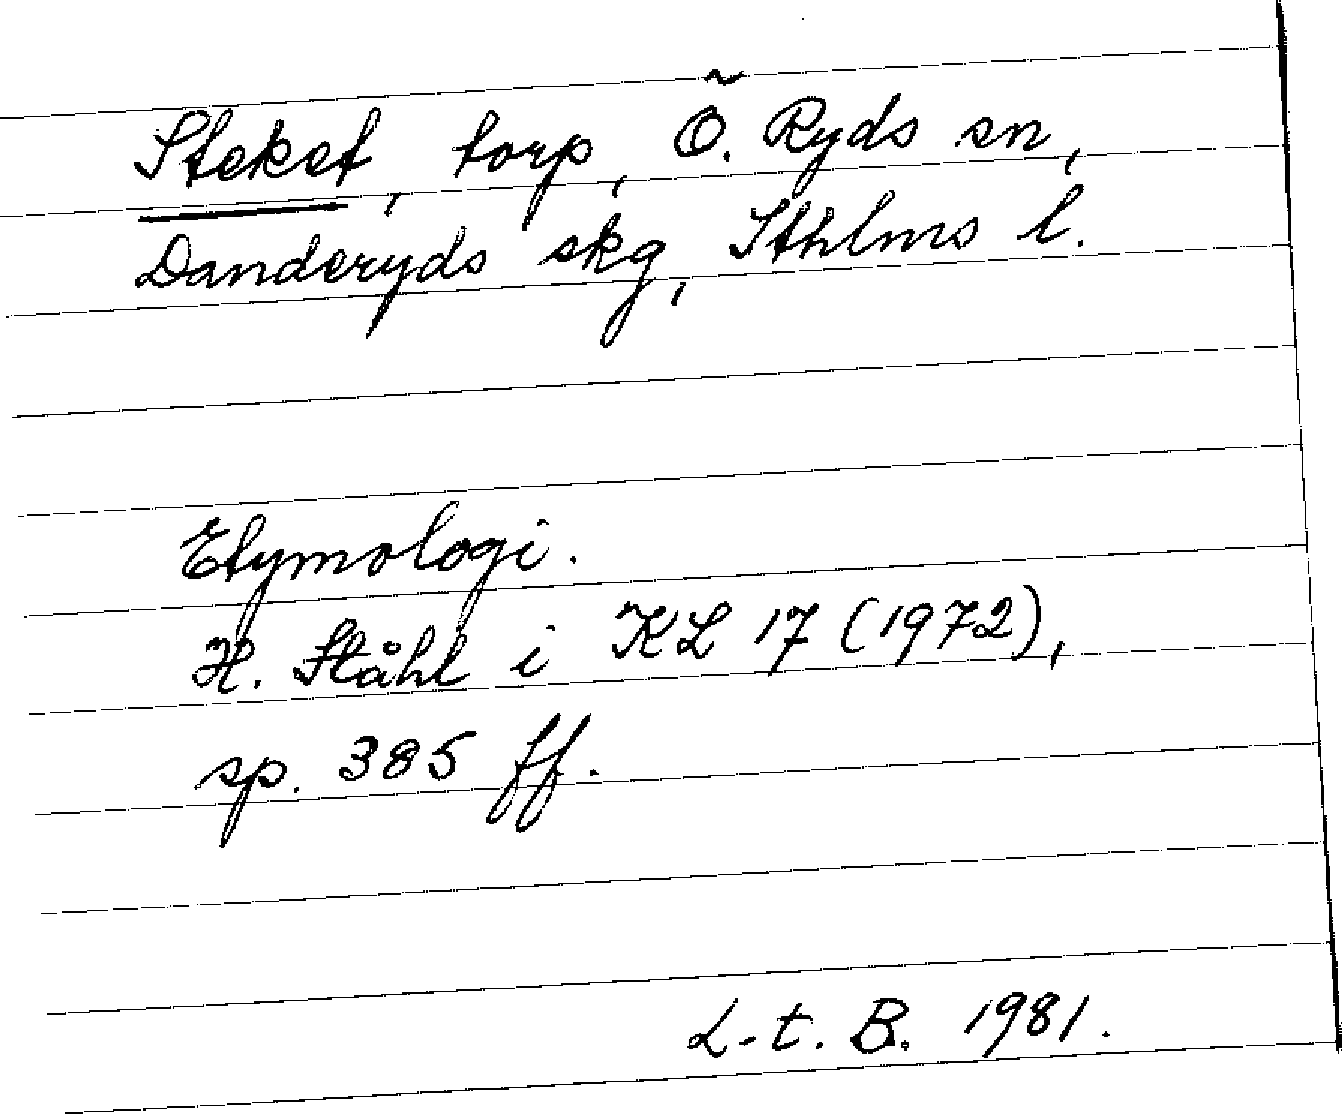 Steket, torp, Ö. Ryds sn,
Danderyds skg, Sthlms l.
Etymologi.
H. Ståhl i KL 17 (1972),
sp. 385 ff.
L-t. B. 1981.